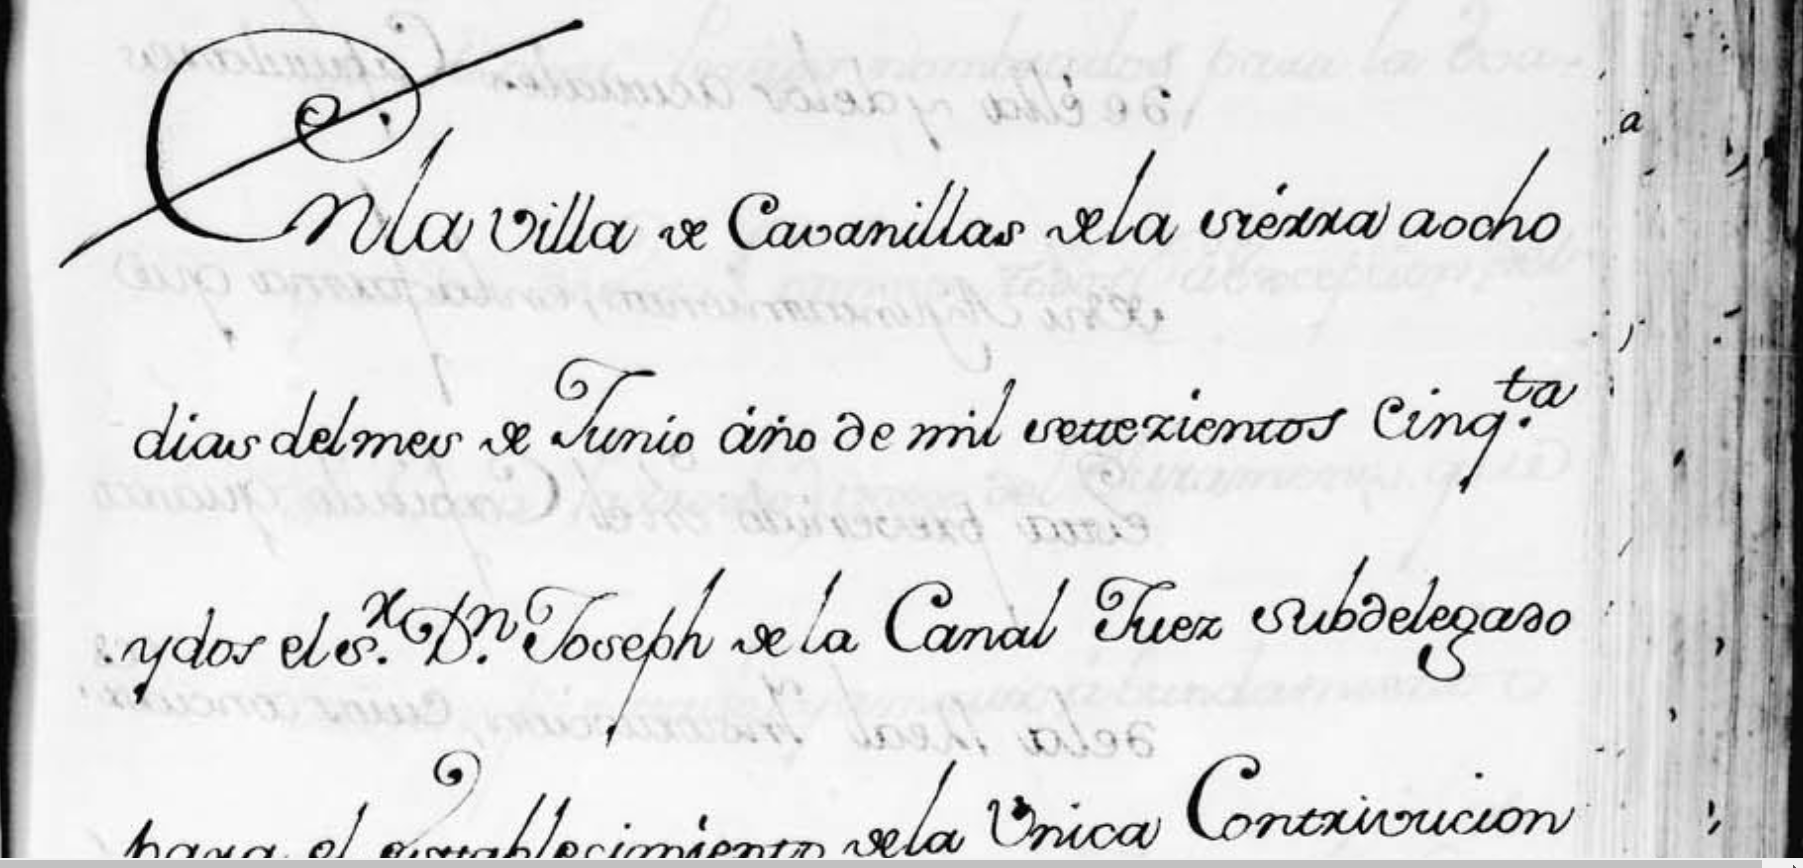 En la villa de Cavanillas de la sierra a ocho
dias del mes de Junio áño de mil settezientos Cinq.ta
y dos el s.r D.n Joseph de la Canal Juez subdelegado
para el establecimiento de la Vnica Contrivucion